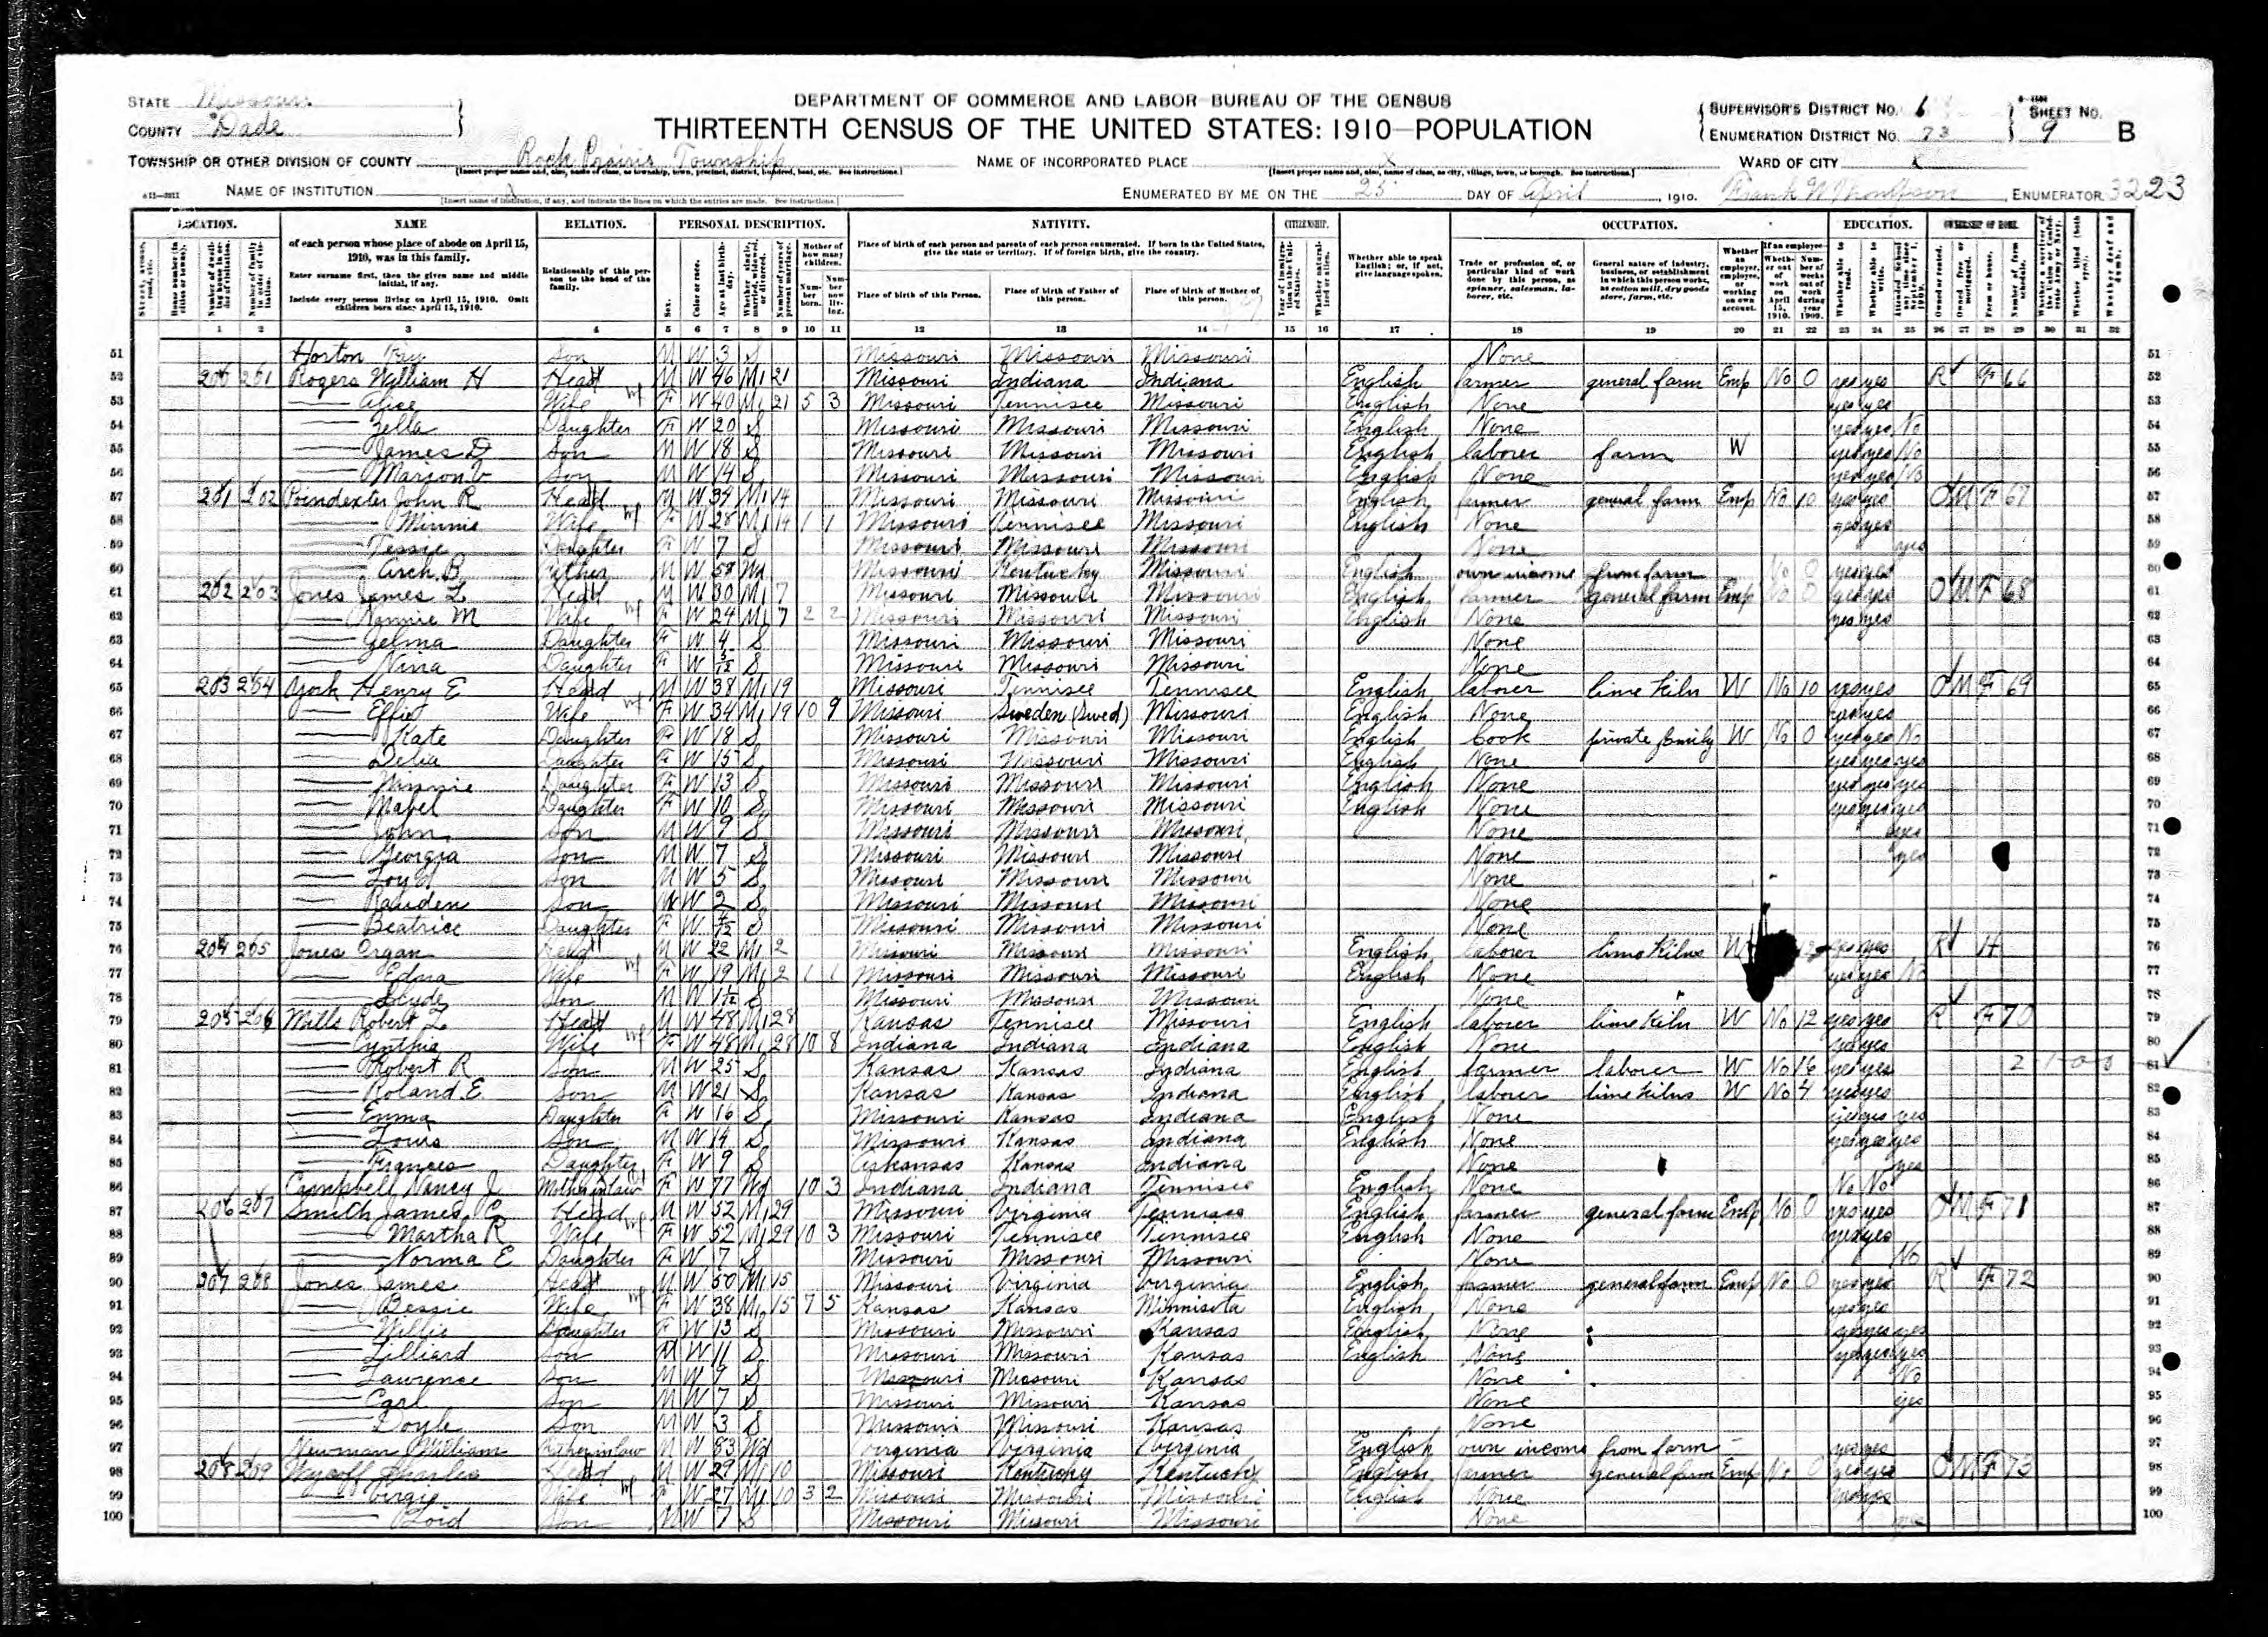 STATE Missouri
COUNTY Dade
DEPARTMENT OF COMMERCE AND LABOR—BUREAU OF THE CENSUS
THIRTEENTH CENSUS OF THE UNITED STATES: 1910—POPULATION
SUPERVISOR'S DISTRICT No. 6
ENUMERATION DISTRICT No. 73
SHEET No. 9 B
TOWNSHIP OR OTHER DIVISION OF COUNTY Rock Prairie Township
NAME OF INCORPORATED PLACE X
WARD OF CITY X
NAME OF INSTITUTION X
ENUMERATED BY ME ON THE 25 DAY OF April, 1910. Frank W Thompson, ENUMERATOR 3223
LOCATION. NAME RELATION. PERSONAL DESCRIPTION. NATIVITY. CITIZENSHIP. OCCUPATION. EDUCATION. OWNERSHIP OF HOME.
of each person whose place of abode on April 15, 1910, was in this family.
Enter surname first, then the given name and middle initial, if any.
Include every person living on April 15, 1910. Omit children born since April 15, 1910.
Relationship of this person to the head of the family.
Place of birth of each person and parents of each person enumerated. If born in the United States, give the state or territory. If of foreign birth, give the country.
Place of birth of this Person. Place of birth of Father of this person. Place of birth of Mother of this person.
Whether able to speak English; or, if not, give language spoken.
1 2 3 4 5 6 7 8 9 10 11 12 13 14 15 16 17 18 19 20 21 22 23 24 25 26 27 28 29 30 31 32
51 Horton Son M W 3 S Missouri Missouri Missouri None 51
52 200 201 Rogers William H Head M W 46 M1 21 Missouri Indiana Indiana English farmer general farm Emp No 0 yes yes R F 66 52
53 Alice Wife F W 40 M1 21 5 3 Missouri Tennisee Missouri English None yes yes 53
54 Zella Daughter F W 20 S Missouri Missouri Missouri English None yes yes No 54
55 James D Son M W 18 S Missouri Missouri Missouri English laborer farm W yes yes No 55
56 Marion Son M W 14 S Missouri Missouri Missouri English None yes yes No 56
57 201 202 Poindexter John R Head M W 34 M1 14 Missouri Missouri Missouri English farmer general farm Emp No 10 yes yes O M F 67 57
58 Minnie Wife F W 28 M1 14 1 1 Missouri Tennisee Missouri English None yes yes 58
59 Tessie Daughter F W 7 S Missouri Missouri Missouri None yes 59
60 Arch B Father M W 58 Wd Missouri Kentucky Missouri English own income from farm No 0 yes yes 60
61 202 203 Jones James L Head M W 30 M1 7 Missouri Missouri Missouri English farmer general farm Emp No 0 yes yes O M F 68 61
62 Nannie M Wife F W 24 M1 7 2 2 Missouri Missouri Missouri English None yes yes 62
63 Gelma Daughter F W 4 S Missouri Missouri Missouri None 63
64 Nina Daughter F W S Missouri Missouri Missouri None 64
65 203 204 York Henry E Head M W 38 M1 19 Missouri Tennisee Tennisee English laborer lime kiln W No 10 yes yes O M F 69 65
66 Effie Wife F W 34 M1 19 10 9 Missouri Sweden (Swed) Missouri English None yes yes 66
67 Kate Daughter F W 18 S Missouri Missouri Missouri English Cook private family W No 0 yes yes No 67
68 Delia Daughter F W 15 S Missouri Missouri Missouri English None yes yes yes 68
69 Minnie Daughter F W 13 S Missouri Missouri Missouri English None yes yes yes 69
70 Mabel Daughter F W 10 S Missouri Missouri Missouri English None yes yes yes 70
71 John Son M W 9 S Missouri Missouri Missouri None yes 71
72 Georgia Son M W 7 S Missouri Missouri Missouri None yes 72
73 Loyd Son M W 5 S Missouri Missouri Missouri None 73
74 Rauden Son M W 2 S Missouri Missouri Missouri None 74
75 Beatrice Daughter F W S Missouri Missouri Missouri None 75
76 204 205 Jones Organ Head M W 22 M1 2 Missouri Missouri Missouri English laborer lime kilns W yes yes R H 76
77 Edna Wife F W 19 M1 2 1 1 Missouri Missouri Missouri English None yes yes No 77
78 Clyde Son M W S Missouri Missouri Missouri None 78
79 205 206 Mills Robert L Head M W 48 M1 28 Kansas Tennisee Missouri English laborer lime kiln W No 12 yes yes R F 70 79
80 Cynthia Wife F W 48 M1 28 10 8 Indiana Indiana Indiana English None yes yes 80
81 Robert R Son M W 25 S Kansas Kansas Indiana English farmer laborer W No 16 yes yes 2-1-0-0 81
82 Roland E Son M W 21 S Kansas Kansas Indiana English laborer lime kilns W No 4 yes yes 82
83 Emma Daughter F W 16 S Missouri Kansas Indiana English None yes yes yes 83
84 Louis Son M W 14 S Missouri Kansas Indiana English None yes yes yes 84
85 Frances Daughter F W 9 S Arkansas Kansas Indiana None yes 85
86 Campbell Nancy J Mother in law F W 77 Wd 10 3 Indiana Indiana Tennisee English None No No 86
87 206 207 Smith James C Head M W 52 M1 29 Missouri Virginia Tennisee English farmer general farm Emp No 0 yes yes O M F 71 87
88 Martha R Wife F W 52 M1 29 10 3 Missouri Tennisee Tennisee English None yes yes 88
89 Norma E Daughter F W 7 S Missouri Missouri Missouri None No 89
90 207 208 Jones James Head M W 50 M1 15 Missouri Virginia Virginia English farmer general farm Emp No 0 yes yes R F 72 90
91 Bessie Wife F W 38 M1 15 7 5 Kansas Kansas Minnisota English None yes yes 91
92 Willie Daughter F W 13 S Missouri Missouri Kansas English None yes yes yes 92
93 Lilliard Son M W 11 S Missouri Missouri Kansas English None yes yes yes 93
94 Lawrence Son M W 9 S Missouri Missouri Kansas None No 94
95 Carl Son M W 7 S Missouri Missouri Kansas None yes 95
96 Doyle Son M W 3 S Missouri Missouri Kansas None 96
97 Newman William Father in law M W 83 Wd Virginia Virginia Virginia English own income from farm yes yes 97
98 208 209 Wycoff Charles Head M W 29 M1 10 Missouri Kentucky Kentucky English farmer general farm Emp No 0 yes yes O M F 73 98
99 Virgie Wife F W 27 M1 10 3 2 Missouri Missouri Missouri English None yes yes 99
100 Loid Son M W 7 S Missouri Missouri Missouri None 100